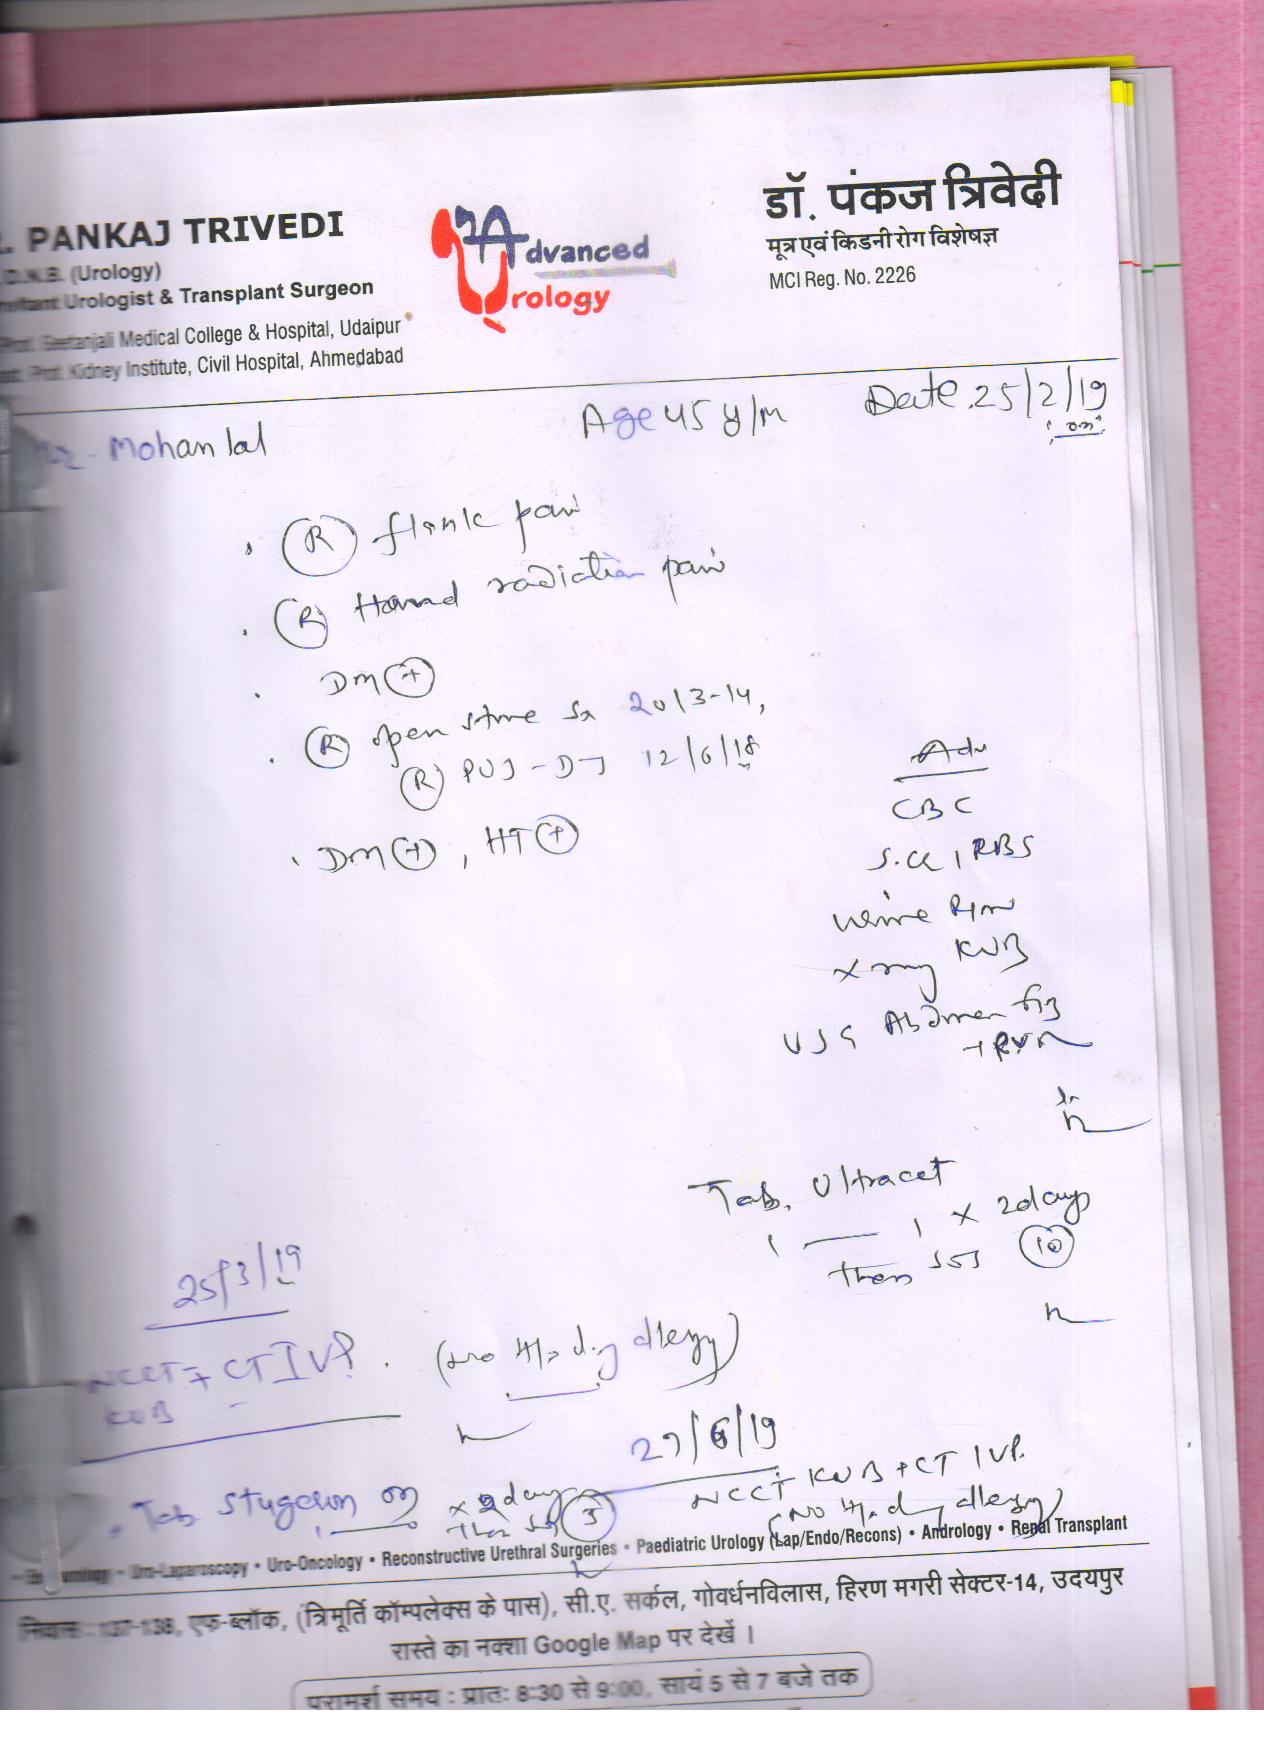 . PANKAJ TRIVEDI
D.N.B. (Urology)
Urologist & Transplant Surgeon
Prof. Geetanjali Medical College & Hospital, Udaipur
Prof. Kidney Institute, Civil Hospital, Ahmedabad
Advanced
Urology
डॉ. पंकज त्रिवेदी
मूत्र एवं किडनी रोग विशेषज्ञ
MCI Reg. No. 2226
Mohan lal
Age 45 y/m
Date 25/2/19
(R) flank pain
(R) Hand radiation pain
DM (+)
(R) open stone Sx 2013-14,
(R) PUJ-DJ 12/6/18
DM (+), HT (+)
Adv
CBC
S.Cr, RBS
Urine R/m
X ray KUB
USG Abdomen
+ PVR
Tab. Ultracet
1 — 1 x 2 days
then SOS (10)
25/3/19
NCCT + CT IVP. (No H/o drug allergy)
KUB
27/6/19
NCCT KUB + CT IVP.
(No H/o drug allergy)
Tab Stugeron x 2 days
then (3)
Uro-Laparoscopy • Uro-Oncology • Reconstructive Urethral Surgeries • Paediatric Urology (Lap/Endo/Recons) • Andrology • Renal Transplant
निवास : 137-138, एफ-ब्लॉक, (त्रिमूर्ति कॉम्पलेक्स के पास), सी.ए. सर्कल, गोवर्धनविलास, हिरण मगरी सेक्टर-14, उदयपुर
रास्ते का नक्शा Google Map पर देखें ।
परामर्श समय : प्रातः 8:30 से 9:00, सायं 5 से 7 बजे तक